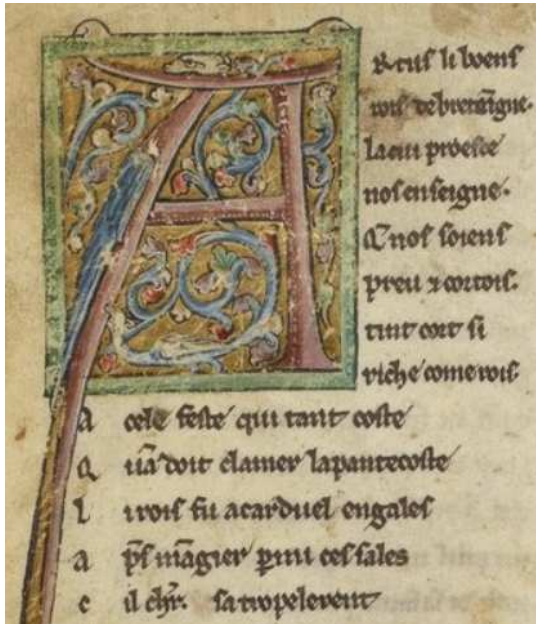 ARtus li boens
rois de bretaīgne.
la cui proesce
nos enseigne.
Q̃ nos soiens
preu ⁊ cortois.
tint cort si
riche come rois
A cele feste qui tant coste
Q uā doit clamer la pantecoste
L i rois fu a carduel en gales
A p̄s māgier ꝑmi ces sales
C il chr̄. sa tropelerent